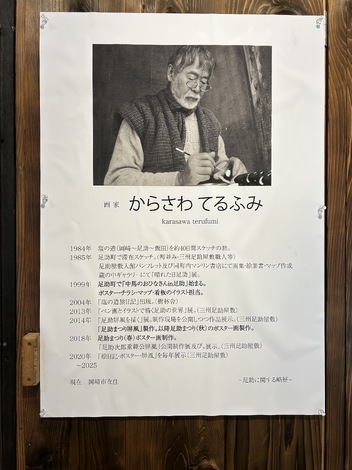 画家 からさわ てるふみ
karasawa terufumi
1984年 塩の道(岡崎～足助～飯田)を約40日間スケッチの旅。
1985年 足助町で滞在スケッチ。(町並み・三州足助屋敷職人等)
足助屋敷入館パンフレット及び同町内マンリン書店にて画集・絵葉書・マップ作成
蔵の中ギャラリーにて「晴れた日足助」展。
1999年 足助町で「中馬のおひなさんin足助」始まる。
ポスター・チラシ・マップ・看板のイラスト担当。
2004年 「塩の道旅日記」出版。(樹林舎)
2013年 「ペン画とイラストで描く足助の世界」展。(三州足助屋敷)
2014年 「足助屏風を描く」展。制作現場を公開しつつ作品展示。(三州足助屋敷)
「足助まつり屏風」製作。以降足助まつり(秋)のポスター画製作。
2018年 足助まつり(春)ポスター画制作。
「足助次郎重範公屏風」公開制作展及び。展示。(三州足助屋敷)
2020年 「桜日記・ポスター原画」を毎年展示(三州足助屋敷)
～2025
現在 岡崎市在住 ～足助に関する略歴～